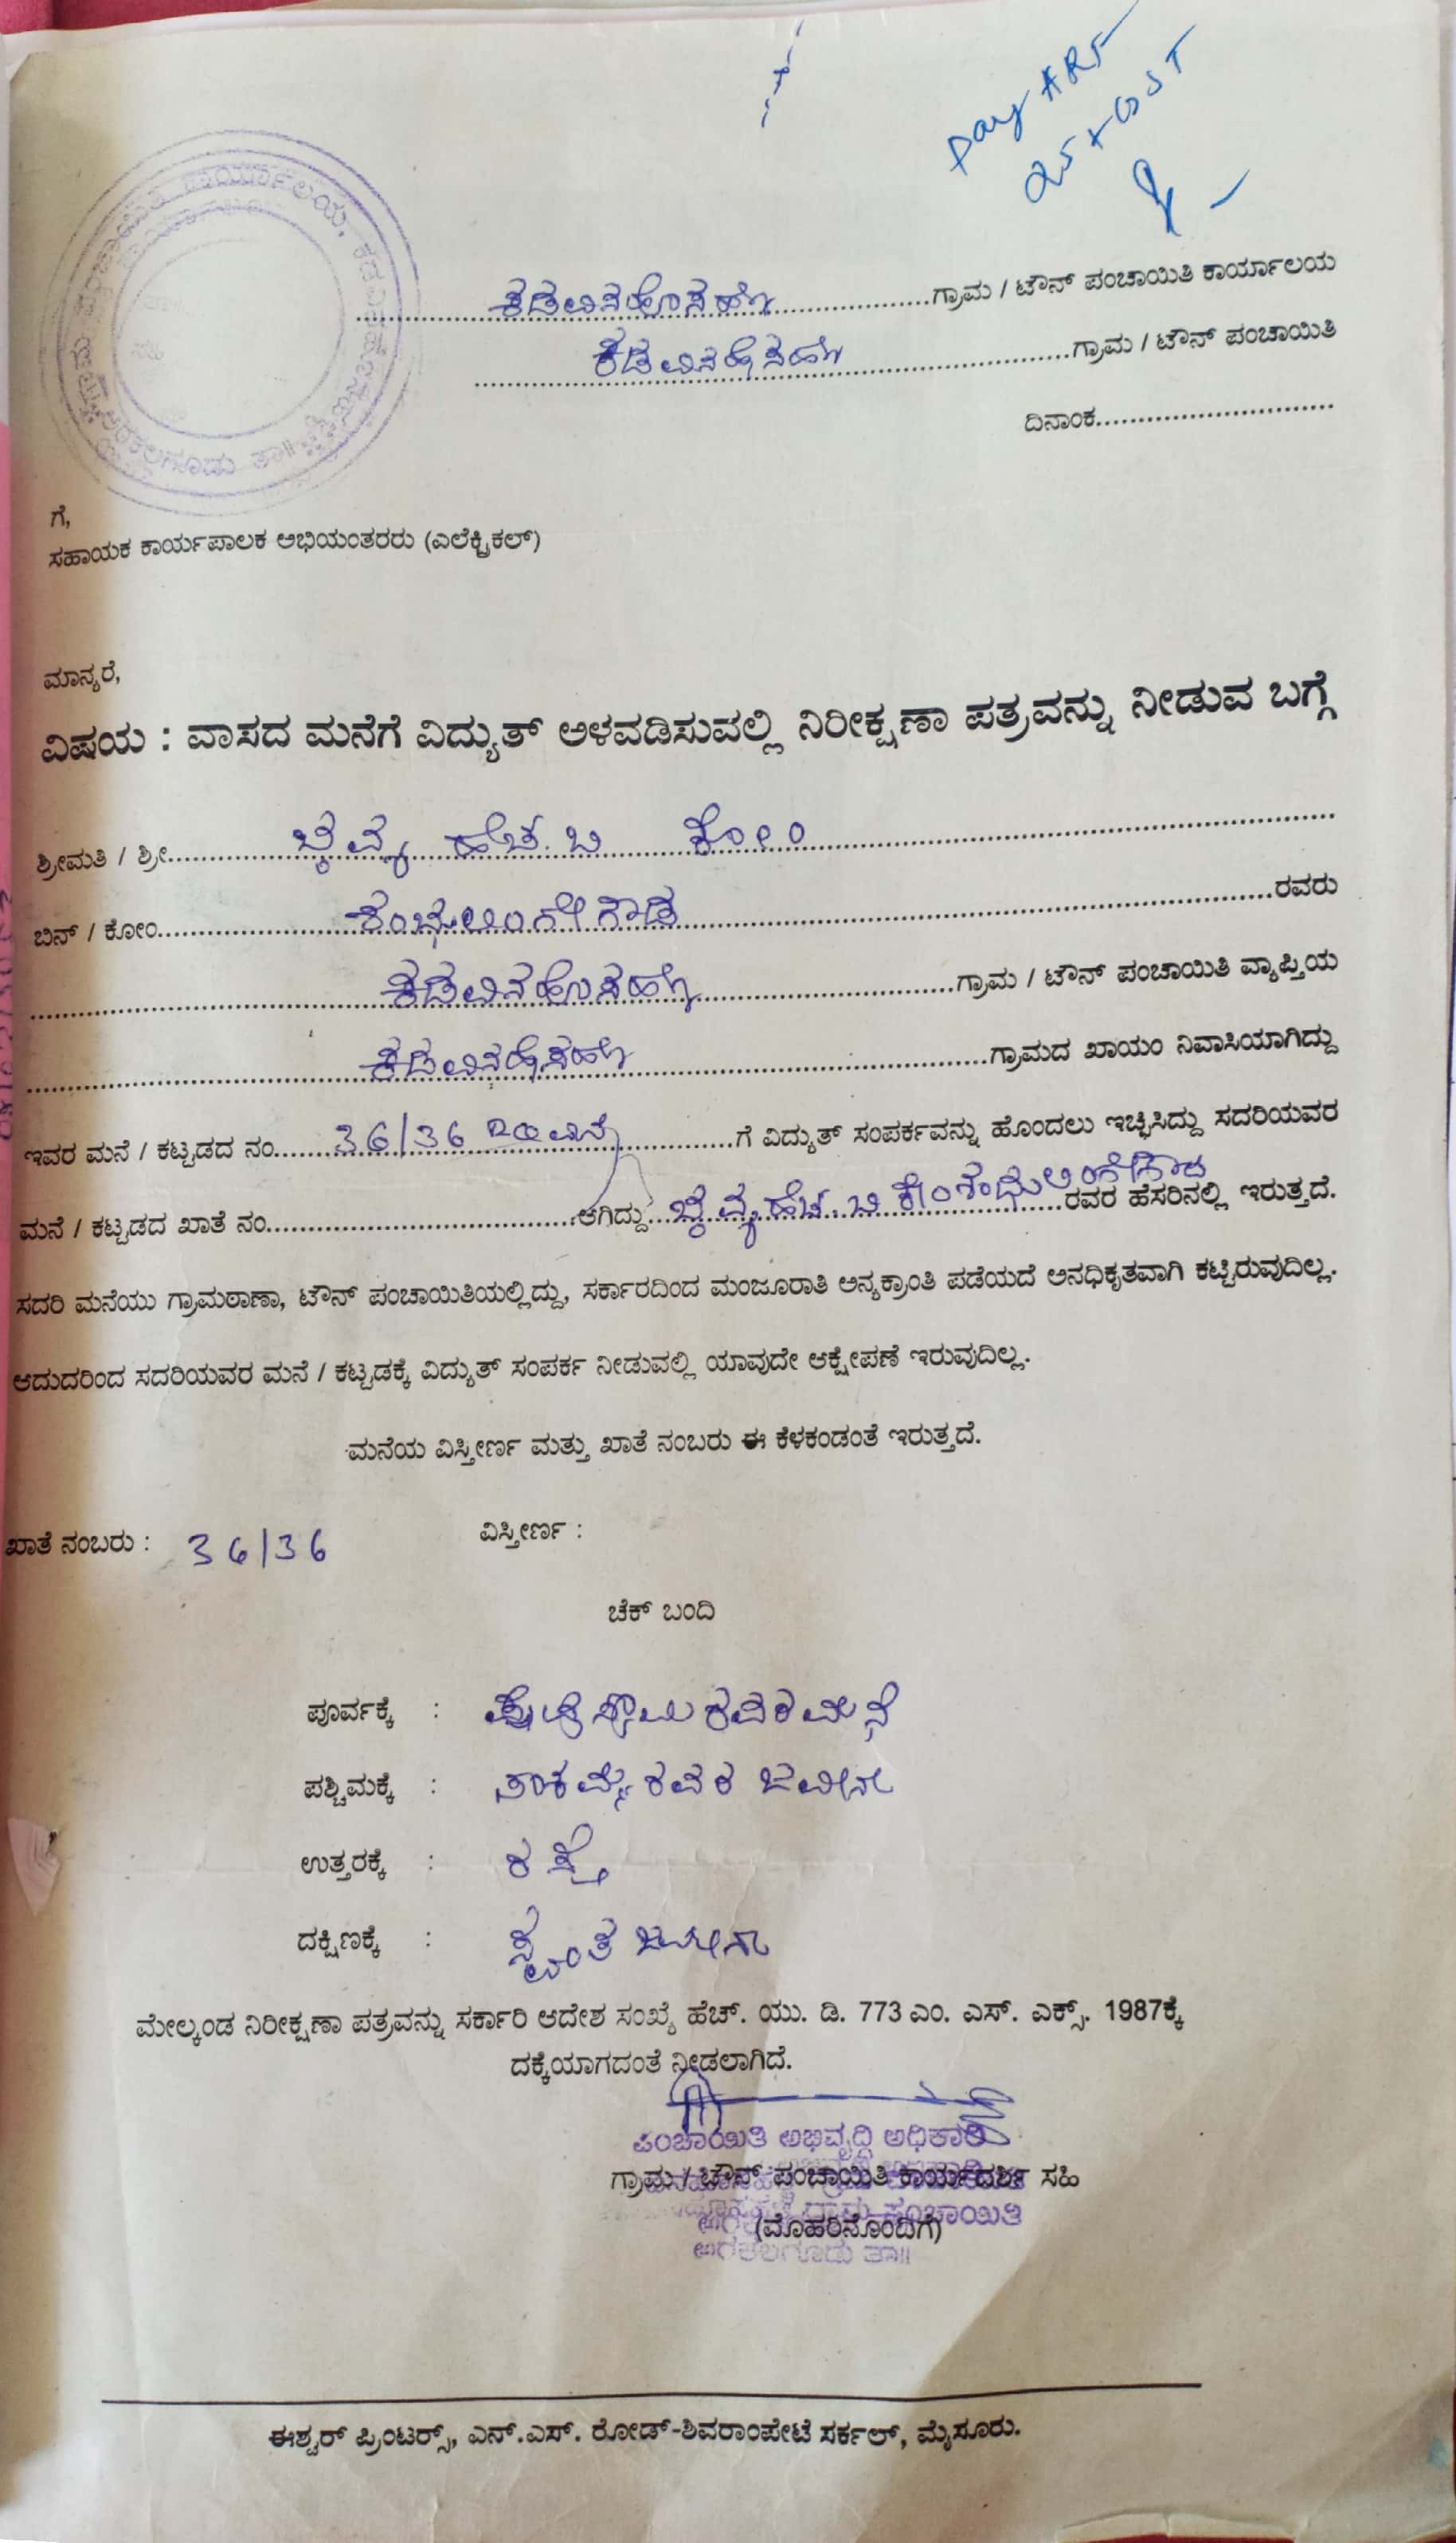 Pay ARF
25 + GST
ಕಡವಿನಹೊಸಹಳ್ಳಿ ಗ್ರಾಮ / ಟೌನ್ ಪಂಚಾಯಿತಿ ಕಾರ್ಯಾಲಯ
ಕಡವಿನಹೊಸಹಳ್ಳಿ ಗ್ರಾಮ / ಟೌನ್ ಪಂಚಾಯಿತಿ
ದಿನಾಂಕ..............................
ಗೆ,
ಸಹಾಯಕ ಕಾರ್ಯಪಾಲಕ ಅಭಿಯಂತರರು (ಎಲೆಕ್ಟ್ರಿಕಲ್)
ಮಾನ್ಯರೆ,
ವಿಷಯ : ವಾಸದ ಮನೆಗೆ ವಿದ್ಯುತ್ ಅಳವಡಿಸುವಲ್ಲಿ ನಿರೀಕ್ಷಣಾ ಪತ್ರವನ್ನು ನೀಡುವ ಬಗ್ಗೆ
ಶ್ರೀಮತಿ / ಶ್ರೀ ಹೆಚ್. ಬಿ ಕೋಂ
ಬಿನ್ / ಕೋಂ ರವರು
ಕಡವಿನಹೊಸಹಳ್ಳಿ ಗ್ರಾಮ / ಟೌನ್ ಪಂಚಾಯಿತಿ ವ್ಯಾಪ್ತಿಯ
ಕಡವಿನಹೊಸಹಳ್ಳಿ ಗ್ರಾಮದ ಖಾಯಂ ನಿವಾಸಿಯಾಗಿದ್ದು
ಇವರ ಮನೆ / ಕಟ್ಟಡದ ನಂ. 36/36 ಗೆ ವಿದ್ಯುತ್ ಸಂಪರ್ಕವನ್ನು ಹೊಂದಲು ಇಚ್ಛಿಸಿದ್ದು ಸದರಿಯವರ
ಮನೆ / ಕಟ್ಟಡದ ಖಾತೆ ನಂ. ಆಗಿದ್ದು ಹೆಚ್. ಬಿ ಕೋಂ ರವರ ಹೆಸರಿನಲ್ಲಿ ಇರುತ್ತದೆ.
ಸದರಿ ಮನೆಯು ಗ್ರಾಮಠಾಣಾ, ಟೌನ್ ಪಂಚಾಯಿತಿಯಲ್ಲಿದ್ದು, ಸರ್ಕಾರದಿಂದ ಮಂಜೂರಾತಿ ಅನ್ಯಕ್ರಾಂತಿ ಪಡೆಯದೆ ಅನಧಿಕೃತವಾಗಿ ಕಟ್ಟಿರುವುದಿಲ್ಲ.
ಆದುದರಿಂದ ಸದರಿಯವರ ಮನೆ / ಕಟ್ಟಡಕ್ಕೆ ವಿದ್ಯುತ್ ಸಂಪರ್ಕ ನೀಡುವಲ್ಲಿ ಯಾವುದೇ ಆಕ್ಷೇಪಣೆ ಇರುವುದಿಲ್ಲ.
ಮನೆಯ ವಿಸ್ತೀರ್ಣ ಮತ್ತು ಖಾತೆ ನಂಬರು ಈ ಕೆಳಕಂಡಂತೆ ಇರುತ್ತದೆ.
ಖಾತೆ ನಂಬರು : 36/36 ವಿಸ್ತೀರ್ಣ :
ಚೆಕ್ ಬಂದಿ
ಪೂರ್ವಕ್ಕೆ : ರವರ ಮನೆ
ಪಶ್ಚಿಮಕ್ಕೆ : ರವರ ಜಮೀನು
ಉತ್ತರಕ್ಕೆ : ರಸ್ತೆ
ದಕ್ಷಿಣಕ್ಕೆ : ಸ್ವಂತ ಜಮೀನು
ಮೇಲ್ಕಂಡ ನಿರೀಕ್ಷಣಾ ಪತ್ರವನ್ನು ಸರ್ಕಾರಿ ಆದೇಶ ಸಂಖ್ಯೆ ಹೆಚ್. ಯು. ಡಿ. 773 ಎಂ. ಎಸ್. ಎಕ್ಸ್. 1987ಕ್ಕೆ
ದಕ್ಕೆಯಾಗದಂತೆ ನೀಡಲಾಗಿದೆ.
ಪಂಚಾಯಿತಿ ಅಭಿವೃದ್ಧಿ ಅಧಿಕಾರಿ
ಗ್ರಾಮ / ಟೌನ್ ಪಂಚಾಯಿತಿ ಕಾರ್ಯದರ್ಶಿ ಸಹಿ
ಗ್ರಾಮ ಪಂಚಾಯಿತಿ
(ಮೊಹರಿನೊಂದಿಗೆ)
ಅರಕಲಗೂಡು ತಾ||
ಈಶ್ವರ್ ಪ್ರಿಂಟರ್ಸ್, ಎನ್.ಎಸ್. ರೋಡ್-ಶಿವರಾಂಪೇಟೆ ಸರ್ಕಲ್, ಮೈಸೂರು.